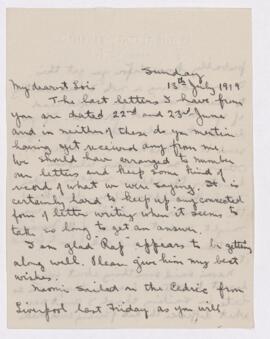 Sunday
13th July 1919
My dearest Lois
The last letters I have from
you are dated 22nd and 23rd June
and in neither of these do you mention
having yet received any from me.
We should have arranged to number
our letters and keep some kind of
record of what we were saying. It is
certainly hard to keep up any connected
form of letter writing when it seems to
take so long to get an answer.
I am glad "Raj" appears to be getting
along well. Please give him my best
wishes.
Naomi sailed on the Cedric from
Liverpool last Friday as you will